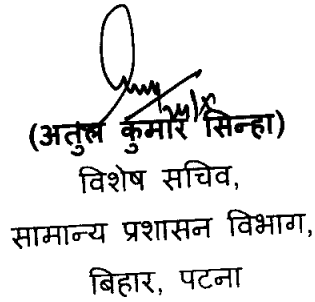 (अतुल कुमार सिन्हा)
विशेष सचिव,
सामान्य प्रशासन विभाग,
बिहार, पटना